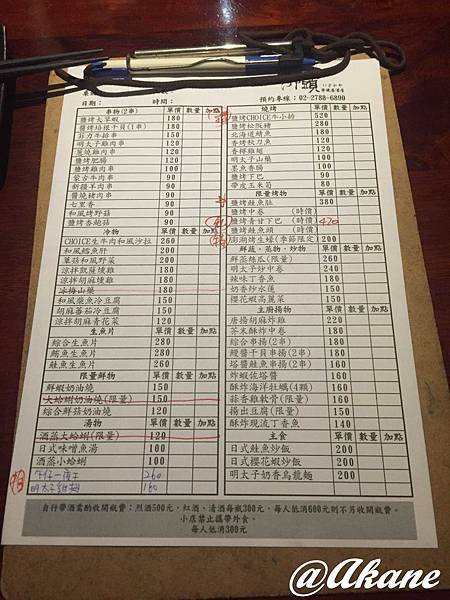 預約專線：02-2788-6890
日期： 時間：
串物(2串) 單價 數量 加點
鹽烤大草蝦 180
鹽烤培根干貝(1串) 180
菲力牛排串 180
明太子雞肉串 120
蔥燒雞肉串 120
鹽烤肥腸 120
鹽烤雞肉串 100
蒙古牛肉串 90
新疆羊肉串 90
醬燒豬肉串 90
七里香 90
和風烤野菇 90
鹽烤杏鮑菇 90
冷物 單價 數量 加點
CHOICE生牛肉和風沙拉 260
和風鱈魚肝 200
菓菇和風野菜 200
涼拌凱薩燻雞 180
涼拌胡麻燻雞 180
冰梅山藥 180
和風柴魚冷豆腐 150
胡麻蕃茄冷豆腐 150
涼拌胡麻青花菜 120
生魚片 單價 數量 加點
綜合生魚片 280
鮪魚生魚片 280
鮭魚生魚片 260
限量鮮物 單價 數量 加點
鮮蝦奶油燒 150
大蛤蜊奶油燒(限量) 150
綜合鮮菇奶油燒 120
湯物 單價 數量 加點
酒蒸大蛤蜊(限量) 120
日式味噌魚湯 100
酒蒸小蛤蜊 100
260
明太子雞翅 160
燒烤 單價 數量 加點
鹽烤CHOICE牛小排 520
鹽烤松阪豬 280
北海道鯖魚 180
香烤秋刀魚 120
香檸雞翅 120
明太子山藥 180
墨魚香腸 180
鹽烤下巴 180
帶皮玉米筍 80
限量烤物 單價 數量 加點
鹽烤鮭魚肚 380
鹽烤中卷 (時價)
鹽烤青甘下巴 (時價) 420
鹽烤鮭魚頭 (時價)
澎湖烤生蠔(季節限定) 200
鮮蔬、蒸物、炒物 單價 數量 加點
鮮蒸絲瓜(限量) 260
明太子炒中卷 240
辣味丁香魚 180
奶香炒水蓮 150
櫻花蝦高麗菜 150
主廚揚物 單價 數量 加點
唐揚胡麻炸雞 220
芥末酥炸中卷 180
綜合串揚(2串) 180
鰻醬干貝串揚(2串) 180
塔醬鮭魚串揚(2串) 160
炸蝦佐塔醬 160
酥炸海洋牡蠣(4顆) 160
蒜香雞軟骨(限量) 160
揚出豆腐(限量) 150
酥炸現流丁香魚 140
主食 單價 數量 加點
日式鮭魚炒飯 200
日式櫻花蝦炒飯 200
明太子奶香烏龍麵 200
自行帶酒需酌收開瓶費：烈酒500元，紅酒、清酒每瓶300元，每人低消600元則不另收開瓶費。
小店禁止攜帶外食。
每人低消300元
@Akane